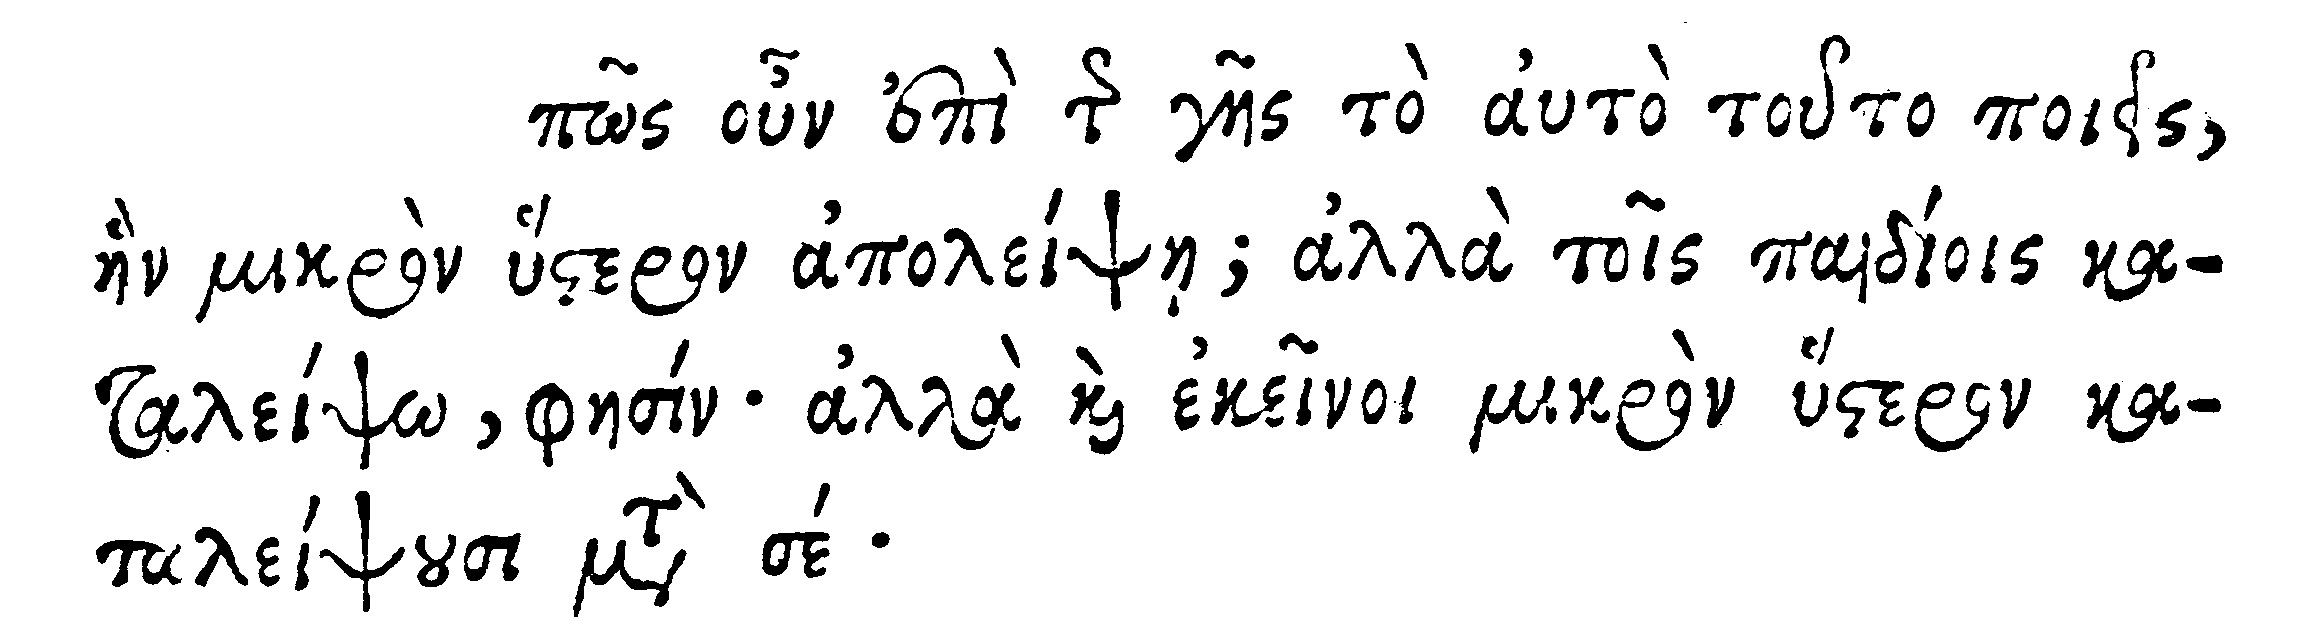 πῶς οὖν ἐπὶ τῆς γῆς τὸ αὐτὸ τοῦτο ποιεῖς,
ἣν μικρὸν ὕστερον ἀπολείψῃ; ἀλλὰ τοῖς παιδίοις κα-
ταλείψω, φησίν· ἀλλὰ καὶ ἐκεῖνοι μικρὸν ὕστερον κα-
ταλείψουσι μετὰ σέ·